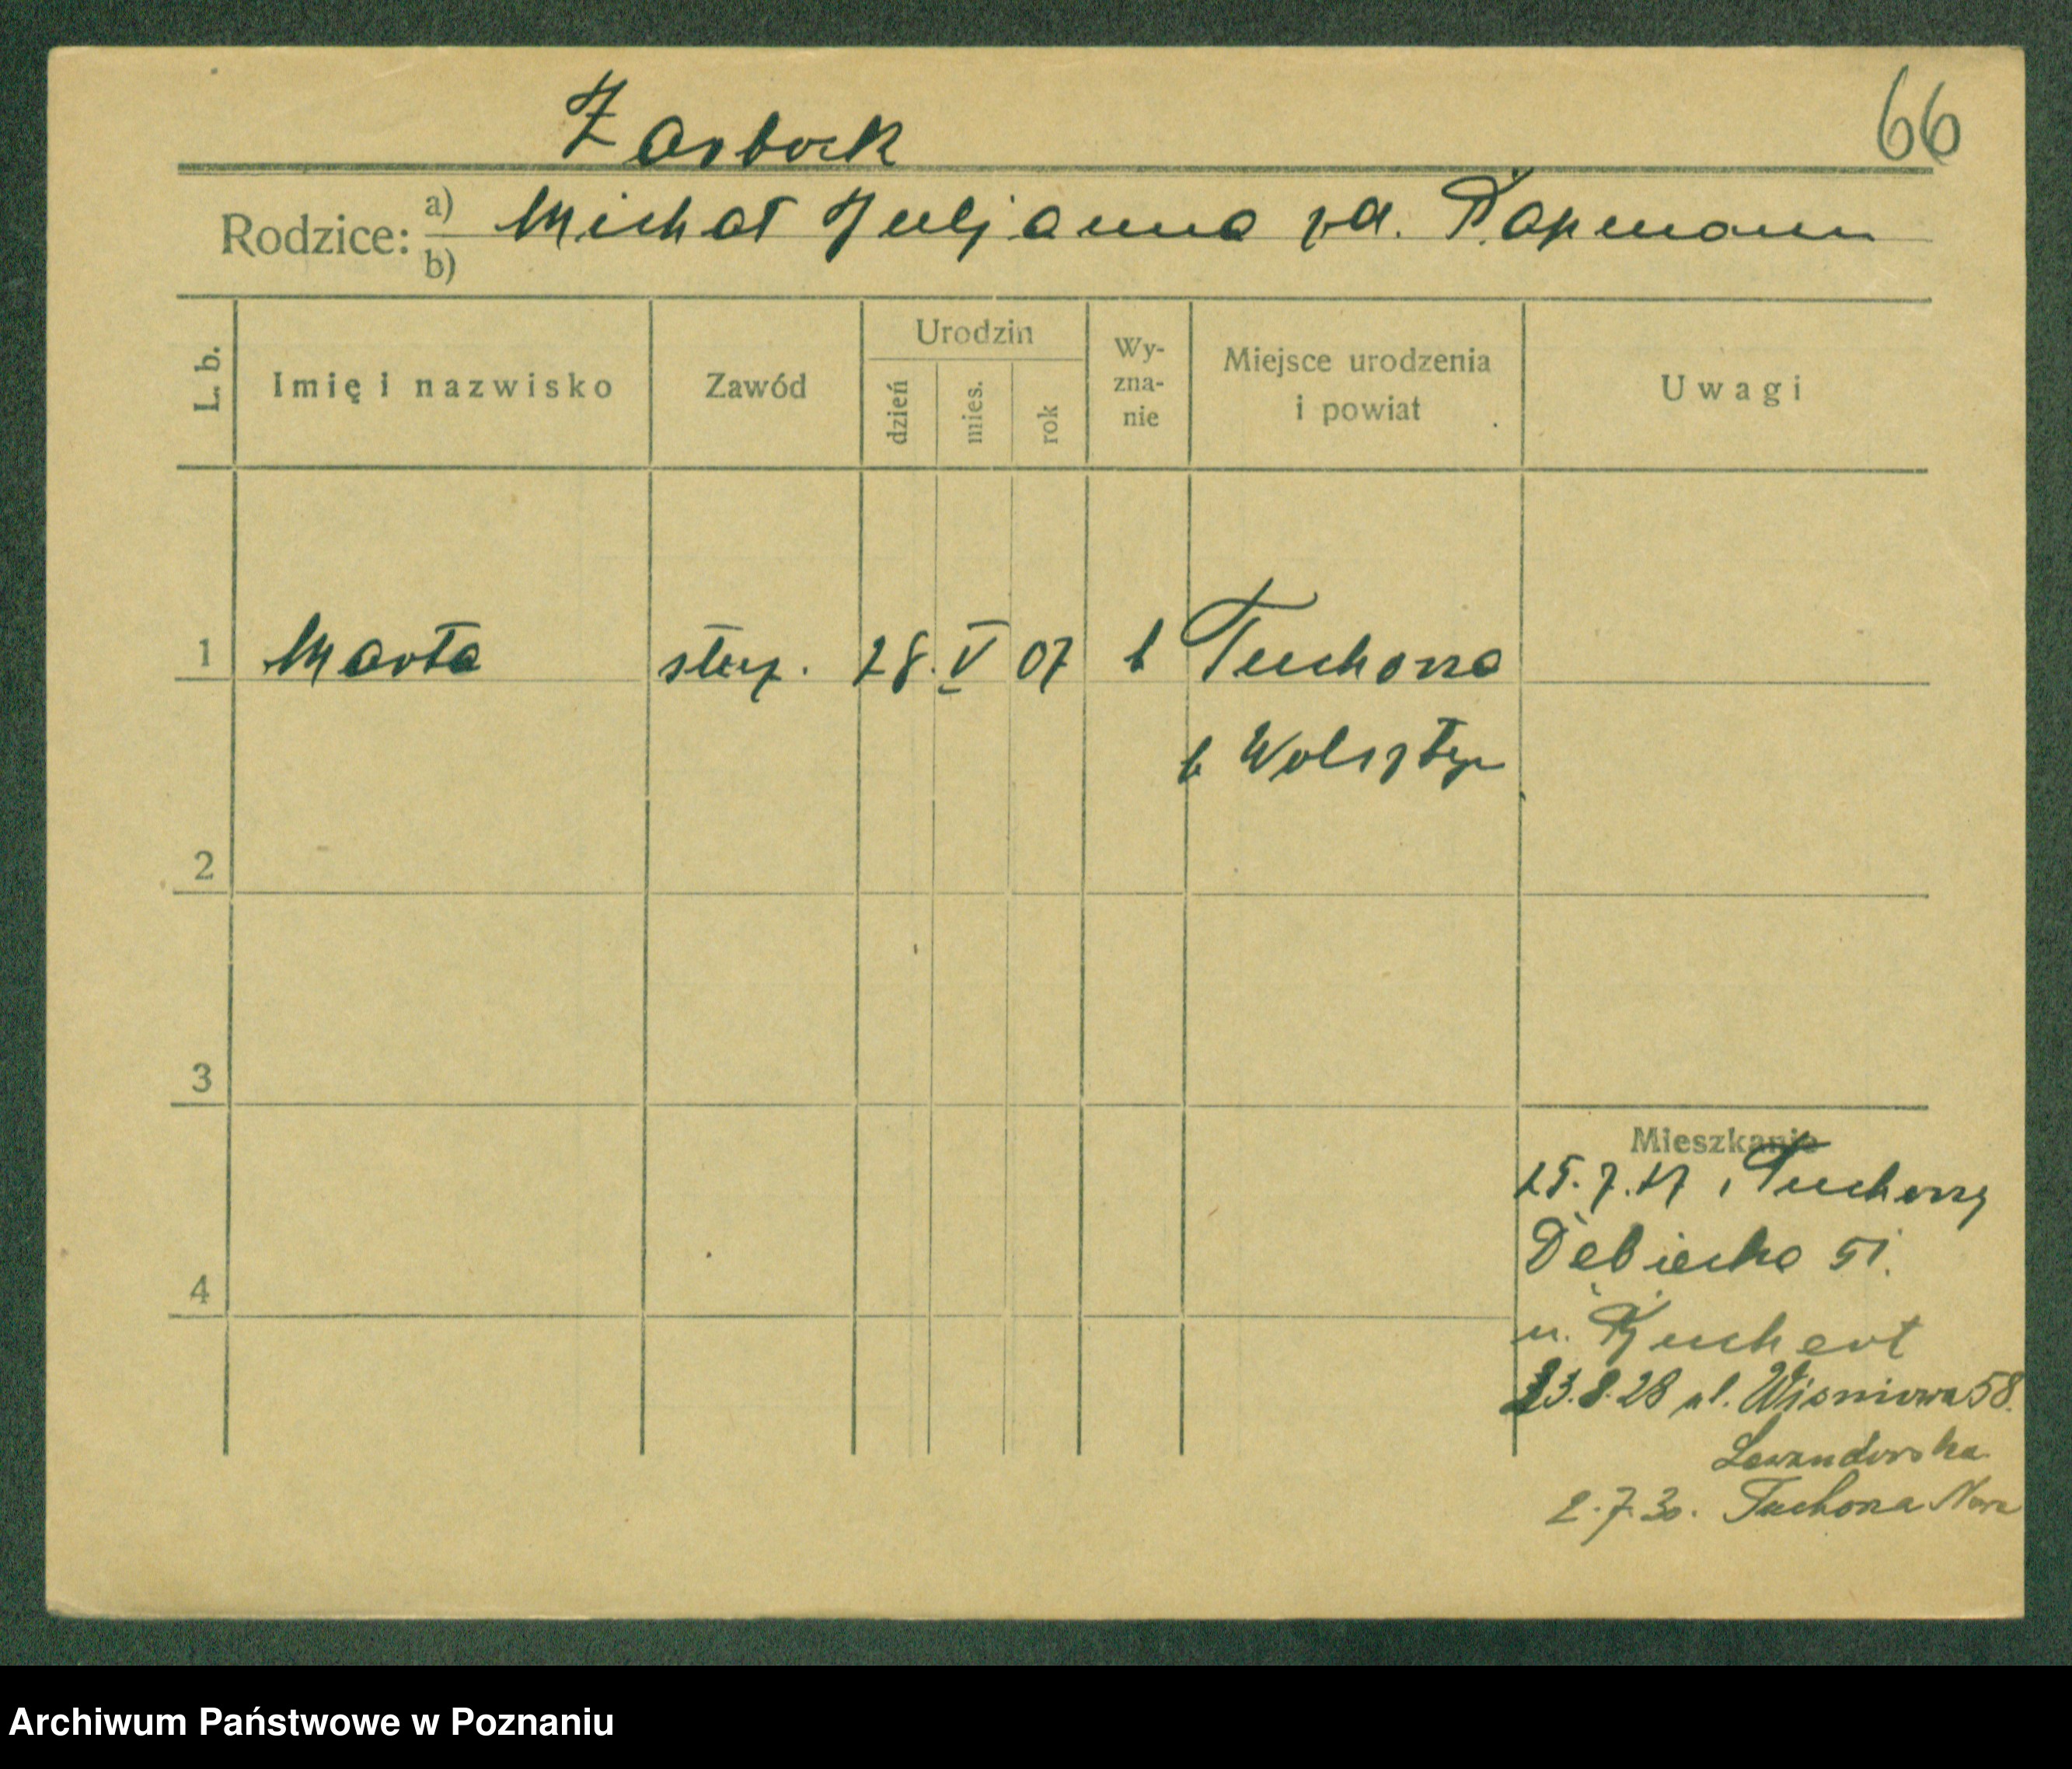 66
Zarbock
Rodzice: a) b) Michał Juljanna zd. Kapmann
L. b.
Imię i nazwisko
Zawód
Urodzin
dzień
mies.
rok
Wy-
zna-
nie
Miejsce urodzenia
i powiat
Uwagi
1 Marta służ. 28. V 07 k Tuchorza
k Wolsztyn
2
3
4
Mieszkanie
25.7.27 , Tuchorzy
Dębiecka 51.
u.
23.8.28 ul. Wiśniowa 58.
Lewandowska
2.7.30. Tuchorza Nowa
Archiwum Państwowe w Poznaniu